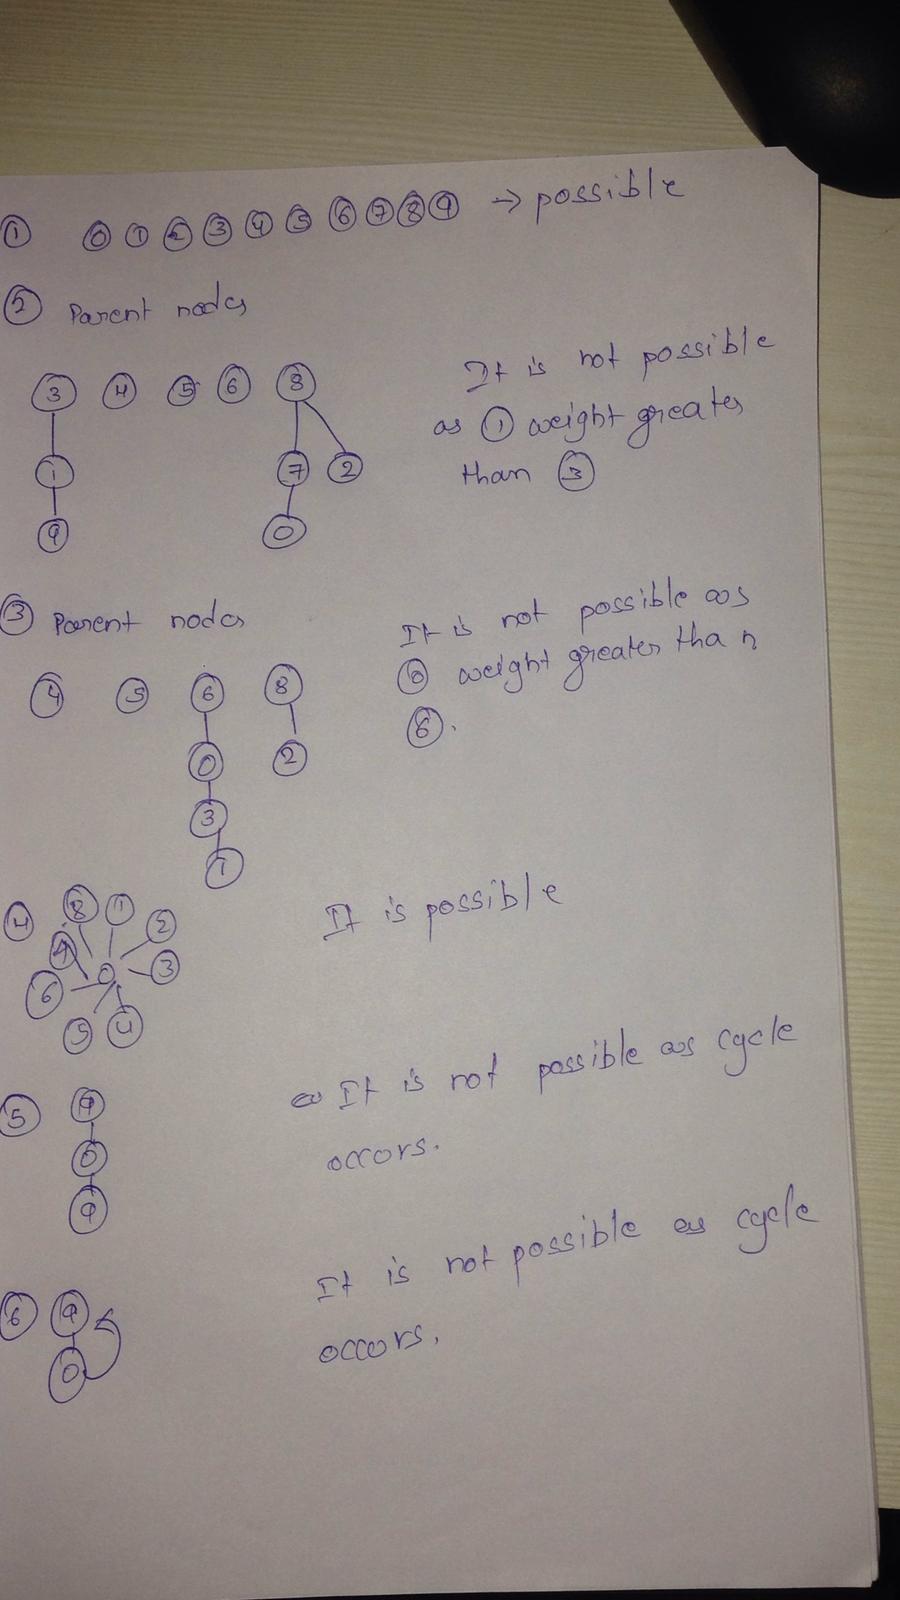 ① 0 1 2 3 4 5 6 7 8 9 → possible
② Parent nodes
3 4 5 6 8
It is not possible
as ① weight greater
than ③
1 7 2
9 0
③ Parent nodes
It is not possible as
⓪ weight greater than
⑥.
4 5 6 8
0 2
3
1
④ 8 1 2
It is possible
0 3
6
5 4
⑤ 9
It is not possible as cycle
occors.
0
9
⑥ 9
It is not possible as cycle
occors.
0